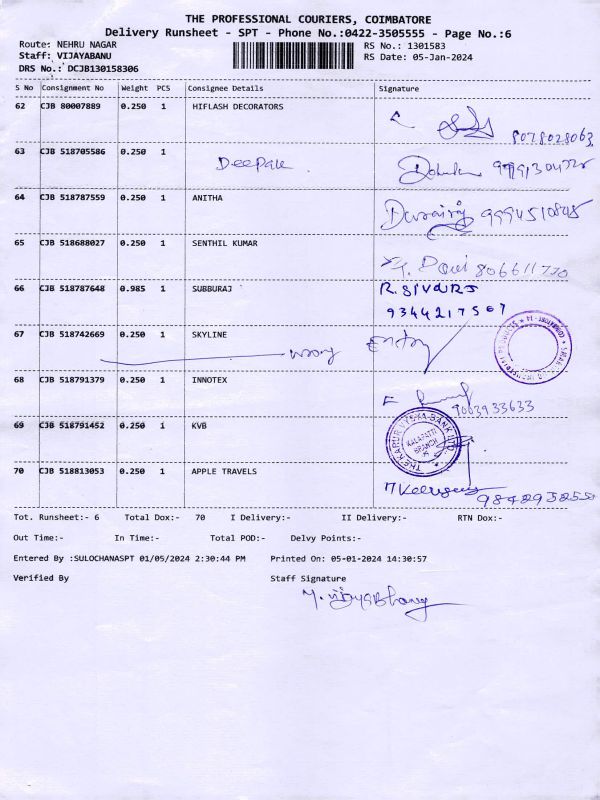 THE PROFESSIONAL COURIERS, COIMBATORE
Delivery Runsheet - SPT - Phone No.:0422-3505555 - Page No.:6
Route: NEHRU NAGAR RS No.: 1301583
Staff: VIJAYABANU RS Date: 05-Jan-2024
DRS No.: DCJB130158306
S No Consignment No Weight PCS Consignee Details Signature
62 CJB 80007889 0.250 1 HIFLASH DECORATORS
8078028063
63 CJB 518705586 0.250 1
Deepak
64 CJB 518787559 0.250 1 ANITHA
65 CJB 518688027 0.250 1 SENTHIL KUMAR
66 CJB 518787648 0.985 1 SUBBURAJ
9344217567
67 CJB 518742669 0.250 1 SKYLINE
wrong Entry
68 CJB 518791379 0.250 1 INNOTEX
9003933633
69 CJB 518791452 0.250 1 KVB
THE KARUR VYSYA BANK LTD
KALAPATTI
BRANCH
70 CJB 518813053 0.250 1 APPLE TRAVELS
Tot. Runsheet:- 6 Total Dox:- 70 I Delivery:- II Delivery:- RTN Dox:-
Out Time:- In Time:- Total POD:- Delvy Points:-
Entered By :SULOCHANASPT 01/05/2024 2:30:44 PM Printed On: 05-01-2024 14:30:57
Verified By Staff Signature